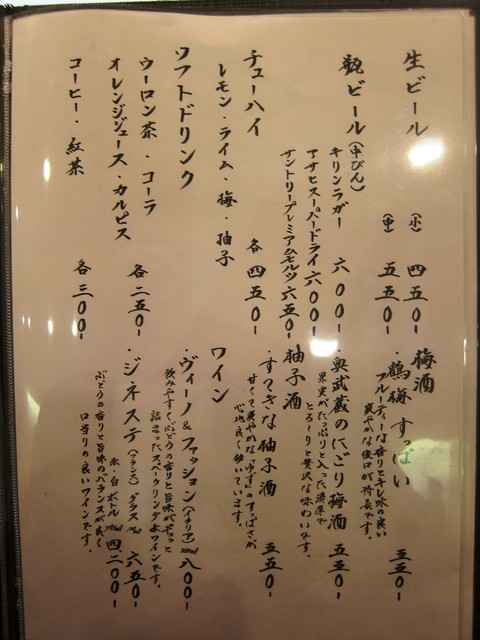 生ビール
(小) 四五0-
(中) 五五0-
瓶ビール(中びん)
キリンラガー 六00-
アサヒスーパードライ 六00-
サントリープレミアムモルツ 六五0-
チューハイ
レモン・ライム・梅・柚子 各四五0-
ソフトドリンク
ウーロン茶・コーラ
オレンジジュース・カルピス 各二五0-
コーヒー・紅茶 各三00-
梅酒
・鶴梅 すっぱい 五五0-
フルーティーな香りとキレ味の良い
爽やかな後口が特長です。
・奥武蔵のにごり梅酒 五五0-
果実がたっぷりと入った濃厚で
とろ〜りと贅沢な味わいです。
柚子酒
・すてきな柚子酒 五五0-
甘くて爽やかな「ゆず」のすっぱさが
心地良く効いています。
ワイン
・ヴィーノ&ファッション(イタリア) 200ml 八00-
飲みやすく、ぶどうの香りと旨味がギュッと
詰まったスパークリング赤ワインです。
・ジネステ(フランス) グラス 六五0-
赤・白 ボトル 四二00-
ぶどうの香りと旨味のバランスが良く
口当りの良いワインです。